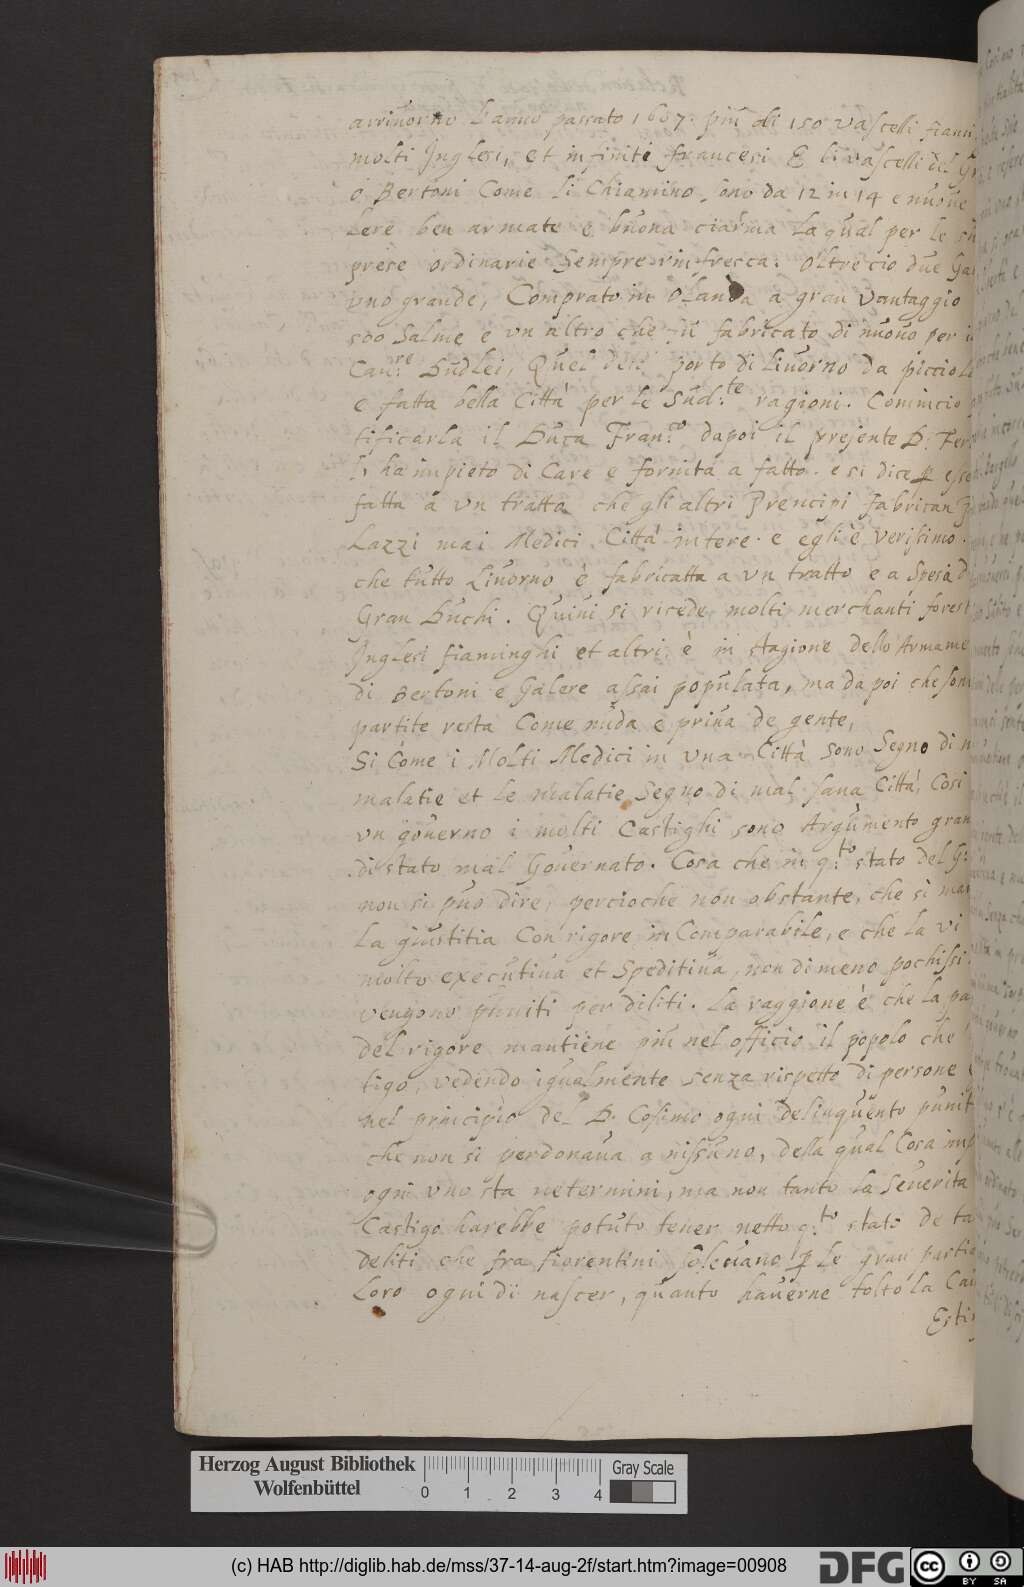 arriuorno l'anno passato 1607. più di 150 Vascelli fiami
molti Inglesi, et infiniti francesi E li vascelli del Gr
ò Bertoni Come li Chiamino, sono da 12 in 14 e nuoue
lere ben armate e buona ciurma la qual per le
prese ordinarie sempre rinfresca. Oltre cio due Ga
vno grande, Comprato in Olanda a gran Vantaggio
500 Salme e vn altro che fu fabricato di nuouo per
Cau:re Dudlei, Quel del porto di Liuorno da picciol
e fatta bella Città per le Sud:te ragioni. Cominciò
tificarla il Duca Fran:co dapoi il presente D. Fer
l'ha impieto di Care e fornita a fatto. e si dice esse
fatta a vn tratta che gli altri Prencipi fabrican Pa
lazzi mai Medici Città intere. e egli è verissimo.
che tutto Liuorno è fabricatta a vn tratto e a spesa d
Gran Duchi. Quiui si ricede molti merchanti forest
Inglesi fiaminghi et altri, è in stagione dello Armame
di Bertoni e Galere assai populata, ma da poi che son
partite resta Come nuda e priua de gente,
Si Come i Molti Medici in vna Città sono Segno di
malatie et le malatie Segno di mal sana Città, Cosi
vn gouerno i molti Castighi sono Argumento gran
di stato mal Gouernato. Cosa che in q:to stato del G:
non si può dire, percioche non obstante, che si ma
la giustitia Con rigore inComparabile, e che la vi
molto executiua et Speditiua, non di meno pochissi
vengono puniti per diliti. La raggione è che la pa
del rigore mantiene più nel officio il popolo che
tigo, vedendo igualmente senza rispetto di persone
nel principio del D. Cosimo ogni delinquento punit
che non si perdonaua a nissuno, della qual Cosa imp
ogni vno sta ne termini, ma non tanto la Seuerita
Castigo harebbe potuto tener netto q:to stato de ta
deliti che fra fiorentini soleuano le gran partia
loro ogni di nascer, quanto hauerne tolto la Cau
Estin
Herzog August Bibliothek
Wolfenbüttel
0 1 2 3 4
Gray Scale
(c) HAB http://diglib.hab.de/mss/37-14-aug-2f/start.htm?image=00908
DFG
cc
BY SA